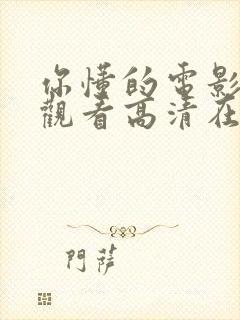 你懂的電影
觀看高清在
門薩